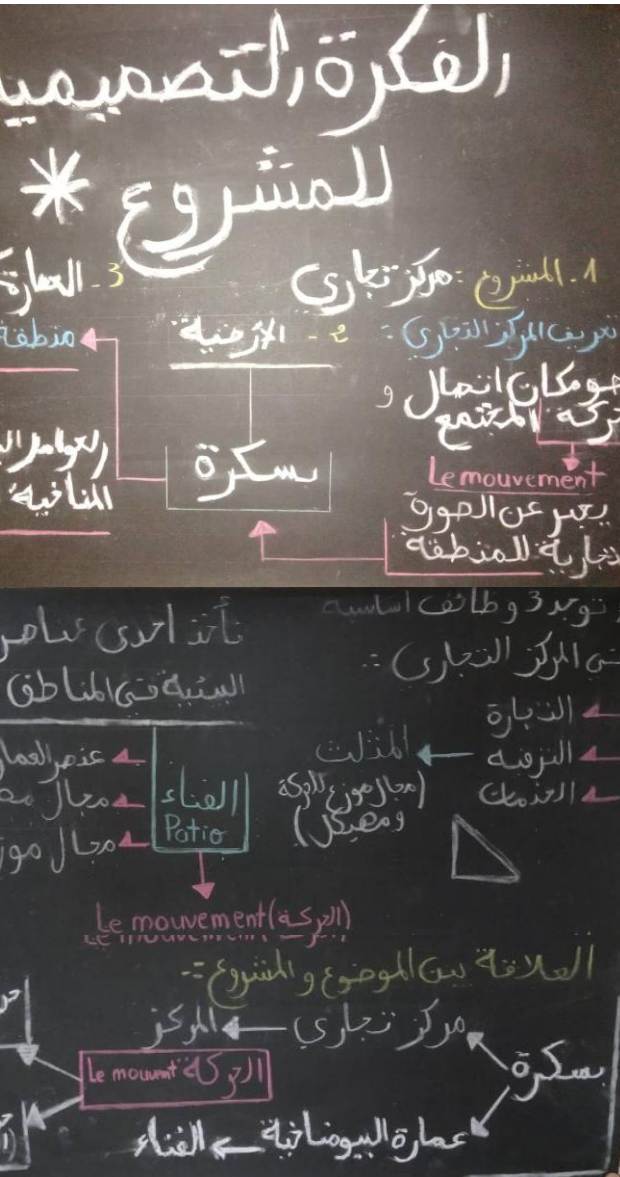 الفكرة التصميمية
للمشروع *
1. المشروع: مركز تجاري
تعريف المركز التجاري:
هو مكان اتصال و
حركة المجتمع
Le mouvement
يعبر عن الصورة
تجارية للمنطقة
2 - الأرضية
بسكرة
3 - العمارة
منطقة
العوامل
المناخية
توجد 3 وظائف اساسية
في المركز التجاري :-
التجارة
الترفيه
الخدمات
المثلث
(مجال موزع للحركة
ومهيكل)
تأخذ احدى عناصر
البيئية في المناطق
الفناء
Patio
عنصر
مجال
مجال
Le mouvement (الحركة)
العلاقة بين الموضوع و المشروع :-
بسكرة
مركز تجاري
المركز
Le mouvmt الحركة
عمارة البيومناخية
الفناء